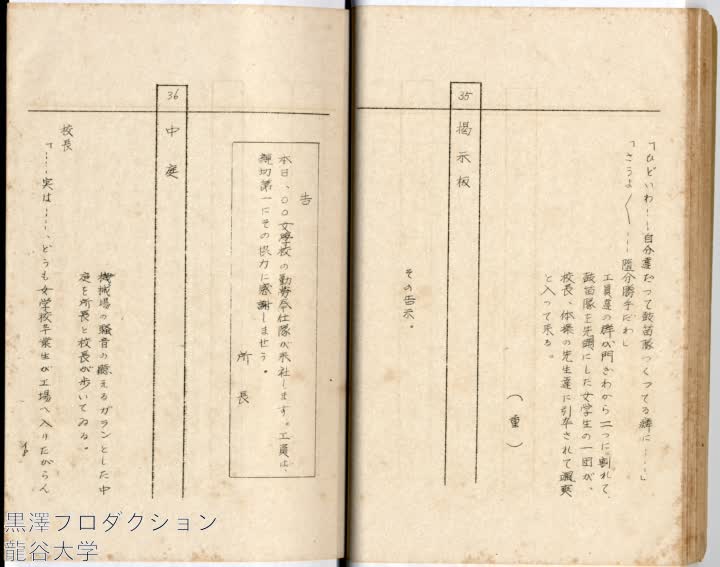 「ひどいわ……自分達だって鼓笛隊つくってる癖に……」
「さうよ〳〵……随分勝手だわ」
工員達の群が門ぎわから二つに割れて、
鼓笛隊を先頭にした女学生の一団が、
校長、体操の先生達に引率されて颯爽
と入って来る。
(重)
35
掲示板
その告示。
告
本日、〇〇女学校の勤労奉仕隊が来社します。工員は、
親切第一にその協力に感謝しませう。
所長
36
中庭
機械場の騒音の聴えるガランとした中
庭を所長と校長が歩いてゐる。
校長
「……実は……、どうも女学校卒業生が工場へ入りたがらん
黒澤プロダクション
龍谷大学